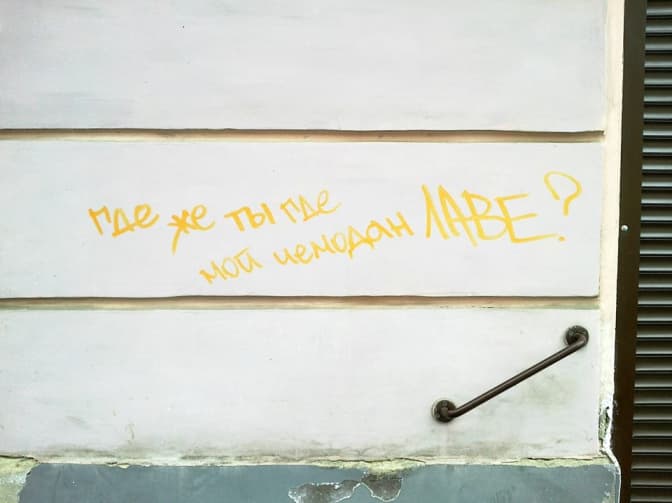 где же ты где
мой чемодан ЛАВЕ?